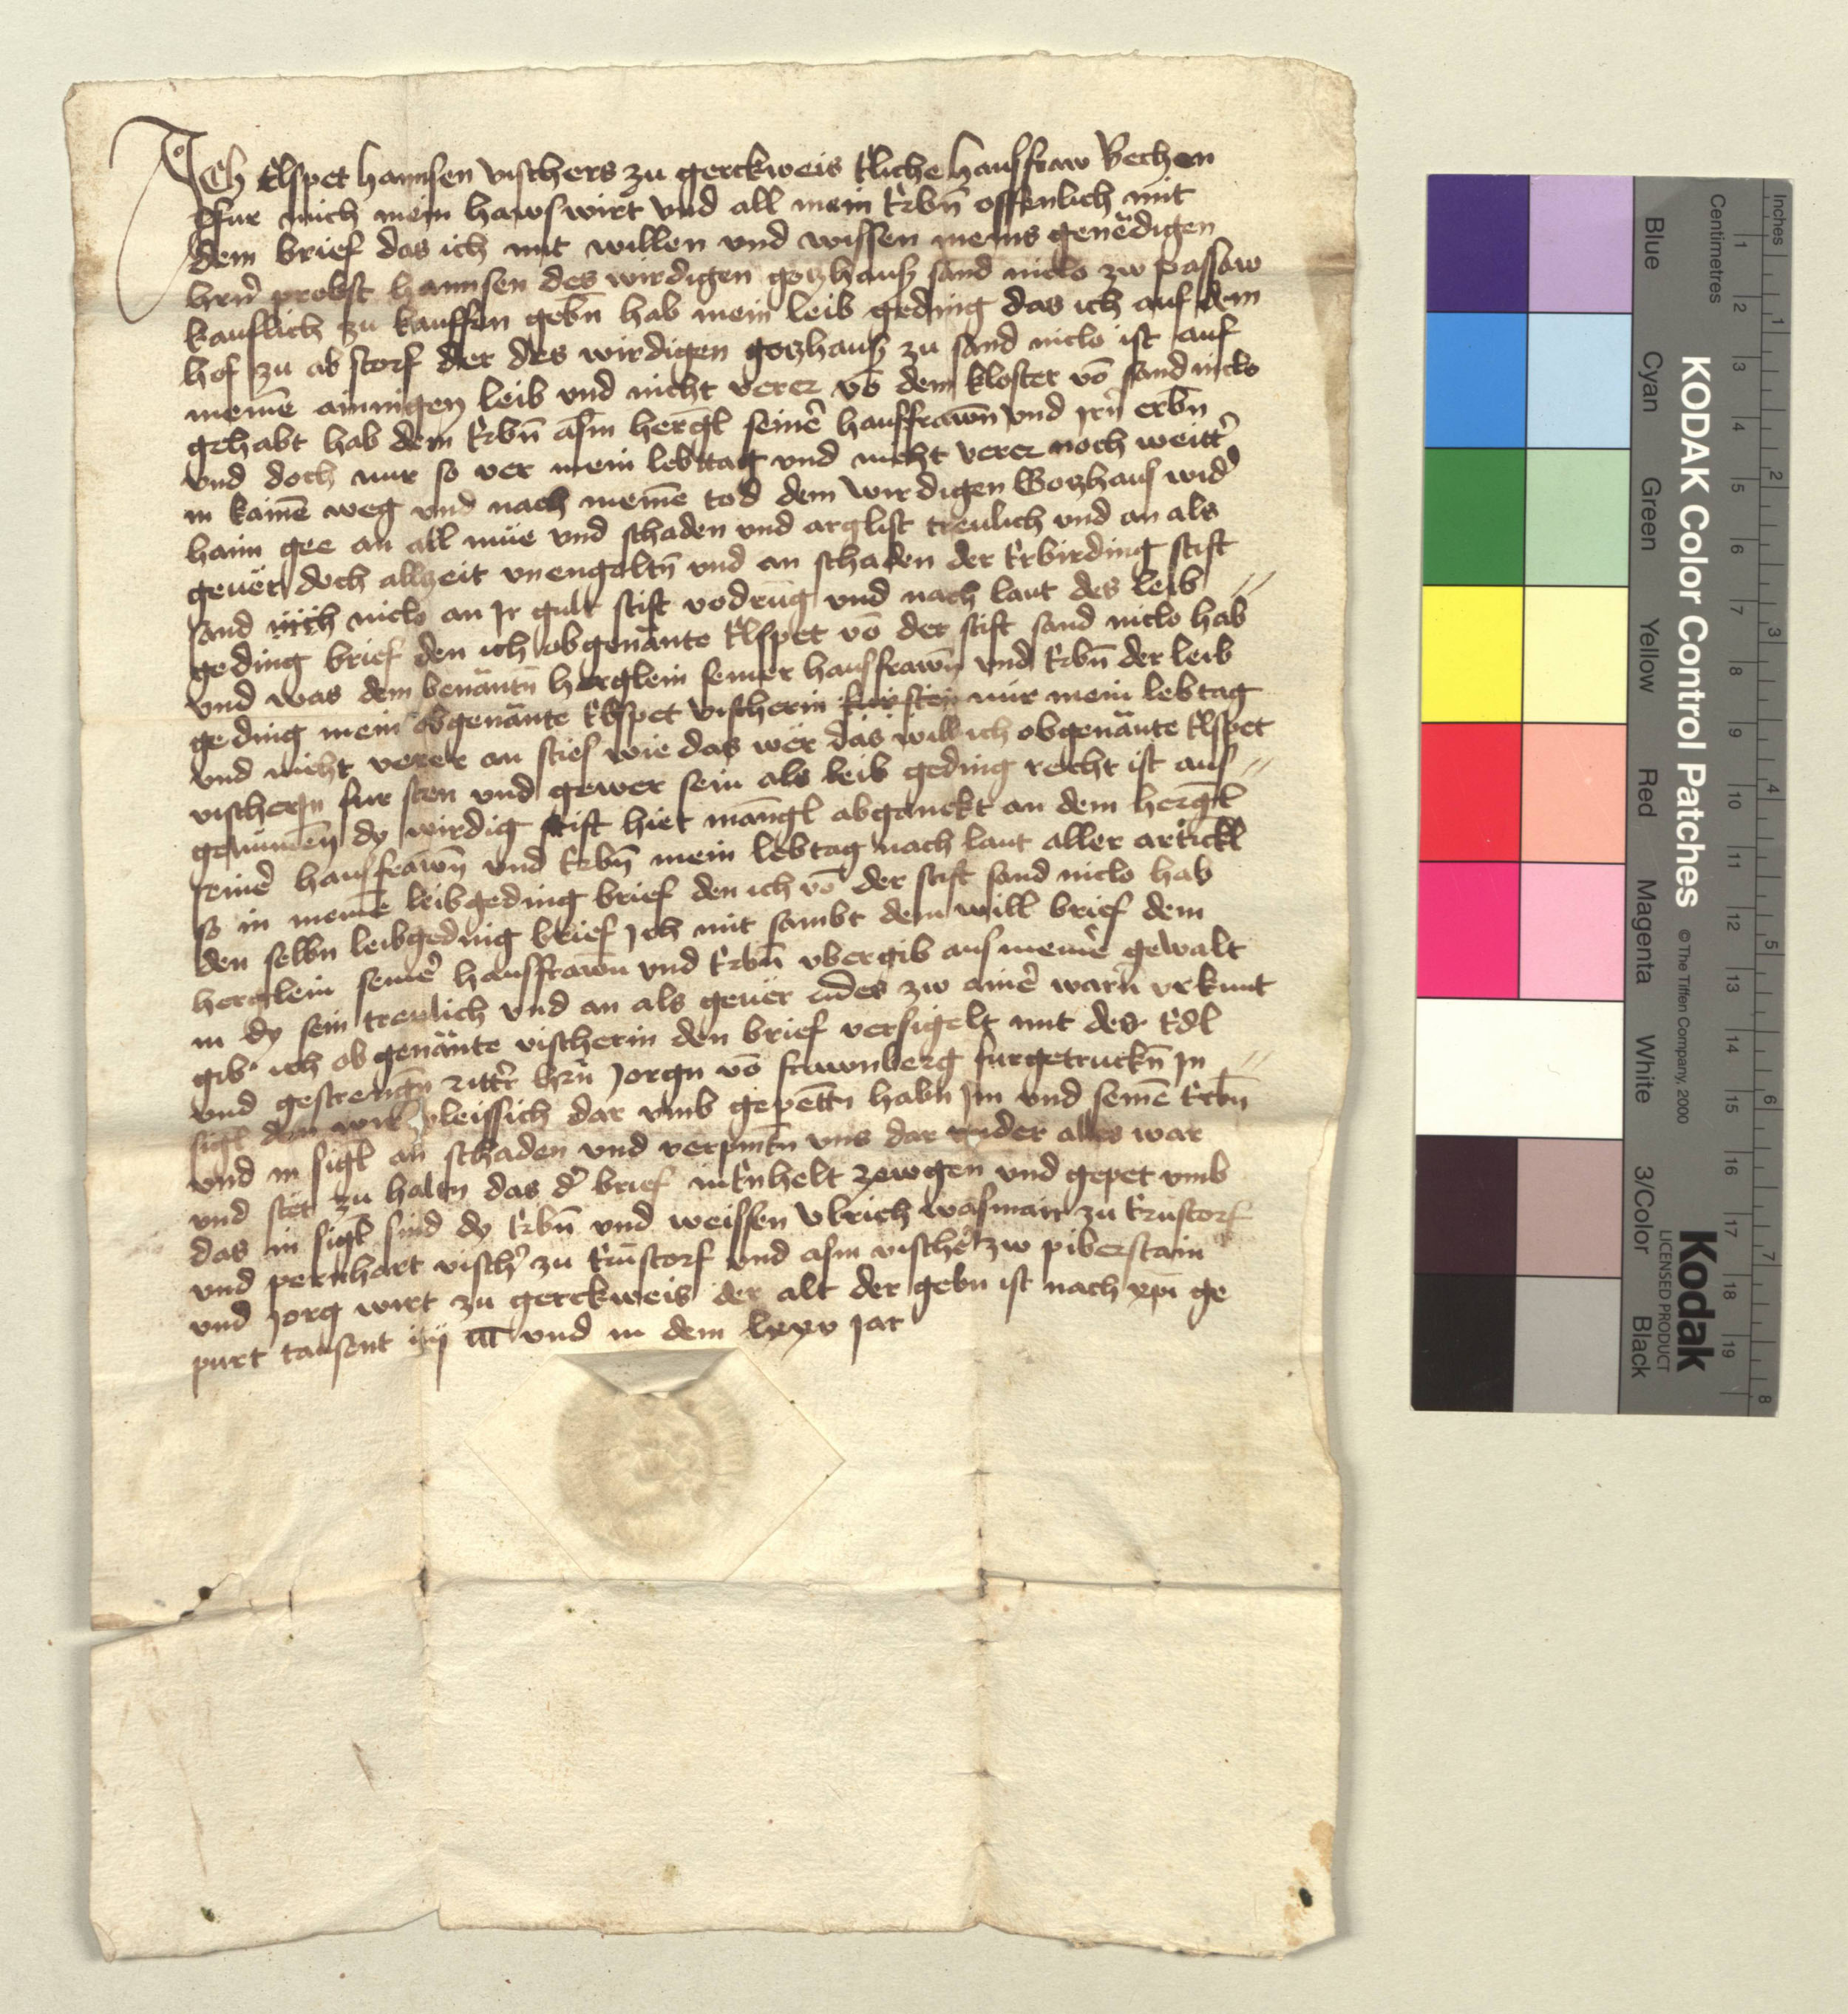 Ich Elspet hannsen vischers zu gerckweis Eliche hausfraw Vechen
fur mich mein hawswirt vnd all mein Erbn̄ offenlich mit
dem brief das ich mit willen vnd wissen meins genëdigen
hern̄ probst hannsen des wirdigen goczhauss sand niclo zw passaw
kauflich zu kauffen gebn̄ hab mein leib geding das ich auf dem
hof zu abstorf der des wirdigen goczhauss zu sand niclo ist auf
meinē ainnigen leib vnd nicht verer vō dem kloster vō sand niclo
gehabt hab dem Erbn̄ asm hergl seinē hausfrawn̄ vnd irn̄ erbn̄
vnd doch nur so ver mein lebttag vnd nicht verer noch weittˀ
in kainē weg vnd nach meinē tod dem wirdigen Goczhaus widˀ
haim gee an all müe vnd schaden vnd arglist treulich vnd an als
geuër doch allzeit vnengoltn̄ vnd an schaden der Erbirding stift
sand niclo an Ir gult stift vodrūg vnd nach laut des leib //
geding brief den ich obgenante Elspet vō der stift sand niclo hab
vnd was dem benantn̄ herglein seiner hausfrawn̄ vnd Erbn̄ der leib
geding mein obgenante Elspet vischerin nur mein lebtag
vnd nicht verer an sties wie das wer das will ich obgenante Elspet
vischerin fur sten vnd gewer sein als leib geding recht ist aus //
genumen dy wirdig stift hiet mangl abganckt an dem hergl
seinē hausfrawn̄ vnd Erbn̄ mein lebtag nach laut aller artickl
so in meinē leibgeding brief den ich vō der stift sand niclo hab
den selbn leibgeding brief Ich mit sambt dem will brief dem
herglein seinē hausfrawn̄ vnd Erbn̄ vbergib aus meinē gewalt
in dy sein treulich vnd an als geuer des zw ainē warn̄ vrkunt
gib ich obgenante vischerin den brief versigelt mit des Edl
vnd gestrengn̄ rittˀr hern̄ Jorgn vō frawnberg furgetruckn̄ In //
sigl den wir vleissich dar vmb gepettn habn Im vnd seinē Erbn̄
vnd in sigl an schaden vnd verpintn̄ vns dar vnder alles war
vnd stet zu haltn das dˀ brief inEnhelt zewgen vnd gepet vmb
das in sigl sind dy Erbn̄ vnd weissen Vlrich wasmair zu Erustorf
vnd pernhart vischˀ zu Erustorf vnd asm vischˀ zw piberstain
vnd Jorg wirt zu gerckweis der alt der gebn ist nach xpi ge
purt tausent iiij c vnd in dem lxxv Jar
KODAK Color Control Patches © The Tiffen Company, 2000
Kodak
LICENSED PRODUCT
Blue Cyan Green Yellow Red Magenta White 3/Color Black
Centimetres 1 2 3 4 5 6 7 8 9 10 11 12 13 14 15 16 17 18 19
Inches 1 2 3 4 5 6 7 8